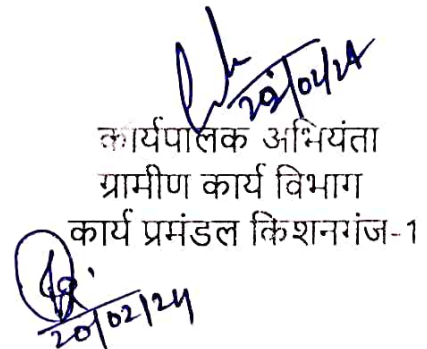 20/02/24
कार्यपालक अभियंता
ग्रामीण कार्य विभाग
कार्य प्रमंडल किशनगंज-1
20/02/24